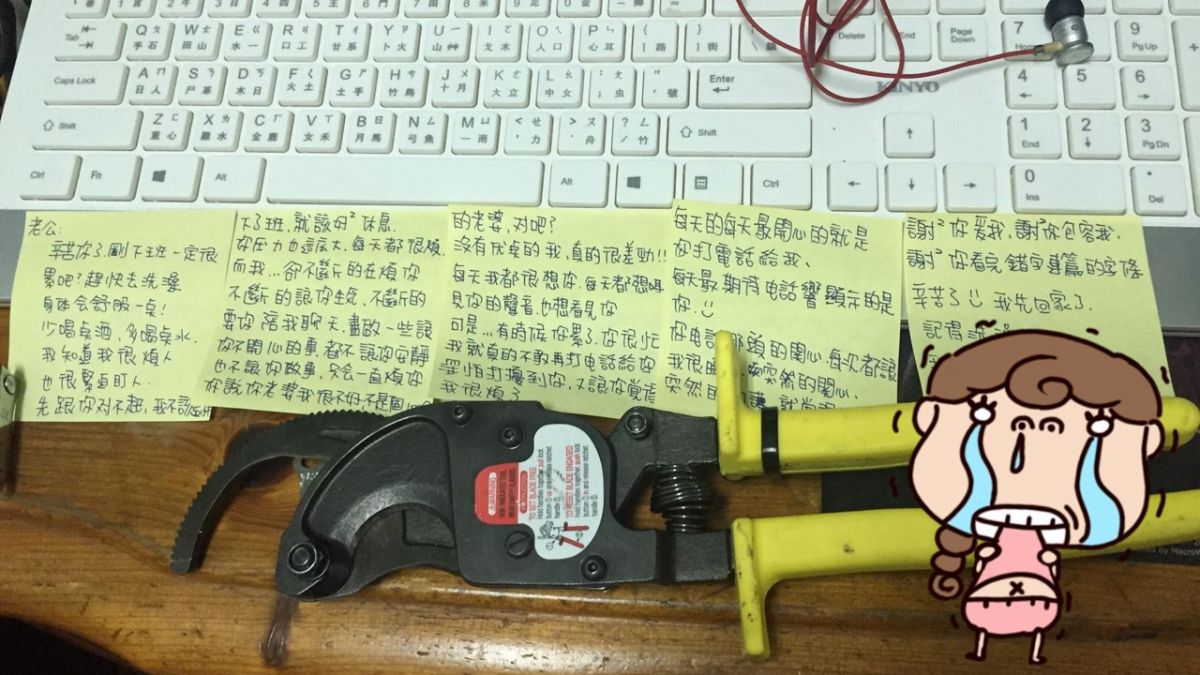 老公:
辛苦你了剛下班一定很
累吧?趕快去洗澡
身体会舒服一点!
少喝点酒,多喝点水.
我知道我很煩人
也很緊迫盯人.
先跟你对不起,我不該
下了班,就該好²休息.
你压力也這広大,每天都很煩.
而我...卻不斷的在煩你
不斷的讓你生氣,不斷的
要你陪我聊天.盡做一些讓
你不開心的事.都不讓你安靜
也不讓你做事.只会一直煩你
你說你老婆我很不好不是
的老婆,对吧?
沒有优点的我,真的很差勁!!
每天我都很想你.每天都想
見你的聲音.也想看見你
可是...有時候你累了.你很忙
我就真的不敢再打电話給你
深怕打擾到你,又讓你覺得
我很煩了
每天的每天最開心的就是
你打電話給我.
每天最期待电話響顯示的是
你.
你电話那頭的関心.每次都讓
我很 突然的関心.
突然的
謝²你爱我,謝²你包容我.
謝²你看完錯字連篇的字條
辛苦了 我先回家了.
記得
Tab
Q 手石
W 田山
E 水一
R 口工
T 廿系
Y 卜火
U 山艸
I 戈木
O 人口
P 心耳
Delete
End
Page Down
7 Home
9 PgUp
Caps Lock
A 日人
S 尸革
D 木日
F 火土
G 土手
H 竹鳥
J 十月
K 大立
L 中女
虫
號
Enter
KINYO
4
5
6
Shift
Z 重心
X 難水
C 金鹿
V 女禾
B 月馬
N 弓魚
M 一雨
力
舟
竹
Shift
1 End
2
3 PgDn
Ctrl
Fn
Alt
Alt
Ctrl
0 Ins
Del
WARNING
TO SET BLADE FREE
Hold handles together, pull lock
TO RESET BLADE ENGAGED
Hold handles together, push lock
button